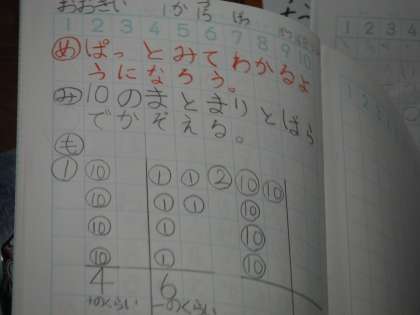 おおきい
1 2 3 4 5 6 7 8 9 10
め ぱっとみてわかるよ
うになろう。
み 10のまとまりとばら
でかぞえる。
も
① ⑩ ① ① ② ⑩ ⑩
⑩ ① ① ⑩
⑩ ① ⑩
⑩ ① ⑩
4 6
十のくらい 一のくらい